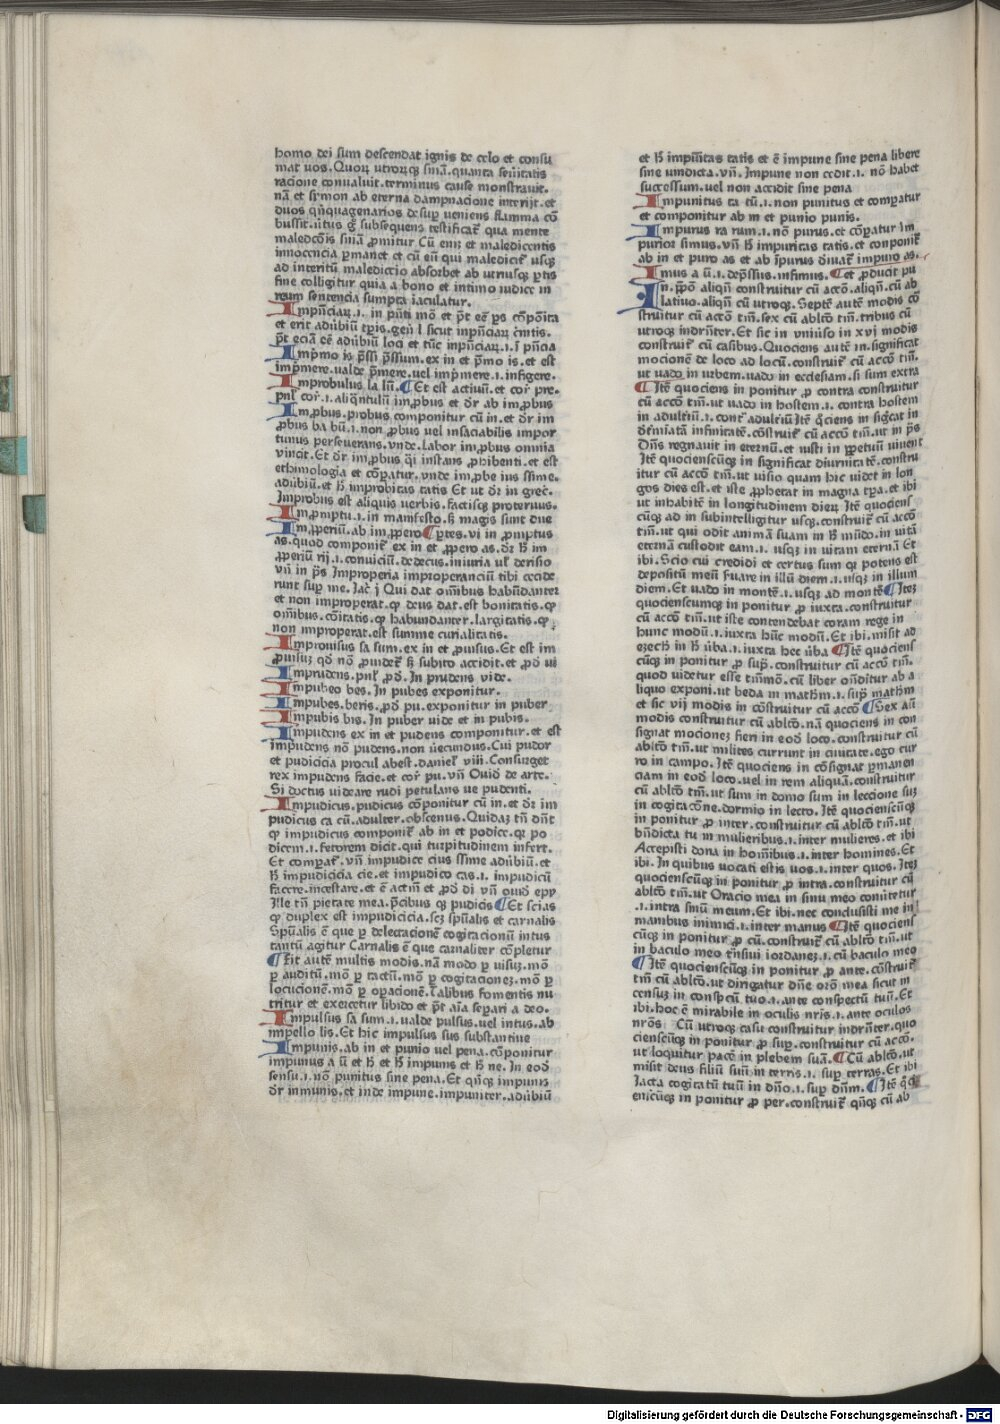 homo dei sum descendat ignis de celo et consu
mat vos. Quoꝝ utroꝝqꝫ sniã.quanta seũitatis
racione conualuit.terminus cause monstrauit.
nã et sermon ab eterna dampnacione interijt.et
duos q̃nquagenarios desuꝑ veniens flamma cõ
bussit.ũtus g̃ subsequens testificat᷑ qua mente
maledicõis sniã ꝓmitur Cũ eniꝫ et maledicentis
innocencia ꝑmanet et cũ eũ qui maledicit᷑ usqꝫ
ad interitũ malediccio absorbet ab utrusqꝫ ꝑtis
fine colligitur quia a bono et intimo iudice in
reum sentencia sumpta iaculatur.
Impñciaꝝ.i. in pñti mõ et p̃t eẽ ꝑs cõpõita
et erit adũbiũ tꝑis.geñ l sicut inpñciaꝝ c̃mtis.
p̃t eciã eẽ adũbiũ loci et tũc inpñciaꝝ.i.ĩ pñcia
Impᷤmo is p̃ssi p̃ssum.ex in et p̃mo is.et est
imp̃mere.valde p̃mere.vel imp̃mere.i.infigere.
Improbulus la lũ.¶Et est actiuũ.et cor̃ pre.
pnĺ cor̃.i.aliq̃ntulũ imꝓbus et dr̃ ab imꝓbus
Imꝓbus.probus componitur cũ in.et dr̃ im
ꝓbus ba bũ.i.non ꝓbus vel insaciabilis impor
tunus perseuerans.vnde.labor imꝓbus omnia
vincit.Et dr̃ imꝓbus q̃i instans ꝓhibenti.et est
ethimologia et cõꝑatur.vnde imꝓbe ius ssime.
adũbiũ.et h̃ improbitas tatis Et ut dr̃ in grec̃.
Improbus est aliquis uerbis.factisqꝫ proteruus.
Imꝓmptu.i.in manifesto.s̃ magis sunt due
Imꝓꝑeriũ.ab imꝓpero¶ꝑtes.vi in ꝓmptus
as.quod componit᷑ ex in et ꝓpero as.dr̃ h̃ im
ꝓperiũ rij.i.conuiciũ.dedecus.iniuria ul̃ derisio
vñ in p̃s Improperia improperanciũ tibi cecide
runt suꝑ me. Iac̃ j Qui dat oĩnibus habũdanter
et non improperat.ꝙ deus dat.est bonitatis.ꝙ
oĩnibus.cõitatis.ꝙ habundanter.largitatis.ꝙ
non improperat.est summe curialitatis.
Improuisus sa sum.ex in et ꝓuisus.Et est im
ꝓuisuꝫ qđ nõ ꝓuideret᷑ s̃ subito accidit.et ꝓd̃ vi
Imprudens.pnĺ ꝓd̃. In prudens vide.
Impubeo bes. In pubes exponitur.
Impubes.beris.ꝓd̃ pu.exponitur in puber
Impubis bis. In puber uide et in pubis.
Impudens ex in et pudens componitur.et est
impudens nõ pudens.non ũecundus. Cui pudor
et pudicicia procul abest.daniel̃ viii.Consurget
rex impudens facie.et cor̃ pu.vñ Ouid̃ de arte.
Si doctus uideare rudi petulans ue pudenti.
Impudicus.pudicus cõponitur cũ in.et dr̃ im
pudicus ca cũ.adulter.obscenus.Quidaꝫ tñ dñt
ꝙ impudicus componit᷑ ab in et podice.qꝫ po
dicem.i.fetorem dicit.qui turpitudinem infert.
Et compar̃.vñ impudice cius ssime adũbiũ.et
h̃ impudicicia cie.et impudico cas.i.impudicũ
facere.incestare.et ẽ actm̃ et ꝓd̃ di vñ ouid̃ epy
Ille tñ pietate mea.p̃cibus qꝫ pudicis ¶Et scias
ꝙ duplex est impudicicia.scꝫ spũalis et carnalis
Spũalis ẽ que ꝑ delectacionẽ cogitacionũ intus
tantũ agitur Carnalis ẽ que carnaliter cõpletur
¶Fit autẽ multis modis.nã modo ꝑ visuꝫ.mõ
ꝑ auditũ.mõ ꝑ tactũ.mõ ꝑ cogitacioneꝫ.mõ ꝑ
locucionẽ.mõ ꝑ oꝑacionẽ.Talibus fomentis nu
tritur et exercetur libido et p̃t aĩa seꝑari a deo.
Impulsus sa sum.i.valde pulsus.vel intus.ab
inpello lis.Et hic impulsus sus substantiue
Impunis.ab in et punio vel pena.cõponitur
inpunus a ũ et h̃ et h̃ impunis et h̃ ne. In eod̃
sensu.i.nõ punitus sine pena.Et qñqꝫ impunis
dr̃ inmunis.et inde impune.impuniter.adũbiũ
et h̃ impũitas tatis et ẽ impune sine pena libere
sine vindicta.vñ. Impune non cedit.i. nõ habet
successum.vel non accidit sine pena
Impunitus ta tũ.i.non punitus et comꝑatur
et componitur ab in et punio punis.
Impurus ra rum.i.nõ purus.et cõꝑatur Im
purior simus.vñ h̃ impuritas tatis.et conponit᷑
ab in et puro as et ab ĩpurus diuat᷑ impuro as.
Imus a ũ.i.dep̃ssus.infimus.¶et ꝓducit pu
In.ꝓpõ aliqñ construitur cũ accõ.aliqñ.cũ ab
latiuo.aliqñ cũ utroqꝫ.Septẽ autẽ modis cõ
struitur cũ accõ tm̃.sex cũ ablcõ tm̃.tribus cũ
utroqꝫ indrñter.Et sic in vniũso in xvi modis
construit᷑ cũ casibus.Quociens autẽ in.significat
mocionẽ de loco ad locũ.construit᷑ cũ accõ tm̃.
ut vado in urbem.vado in ecclesiam.si sum extra
¶Itẽ quociens in ponitur ꝓ contra construitur
cũ accõ tm̃.ut vado in hostem.i.contra hostem
in adulteriũ.i.cont᷑ adulteriũ Itẽ q̃ciens in sig̃cat in
dr̃miatã infinitatẽ.cõstruit᷑ cũ accõ tm̃.ut in p̃s
Dñs regnauit in eternũ.et iusti in ꝑpetuũ viuent
Itẽ quocienscũqꝫ in significat diurnitatẽ.constru
itur cũ accõ tm̃.ut visio quam hic videt in lon
gos dies est.et iste ꝓphetat in magna tꝑa.et ibi
ut inhabitẽ in longitudinem dieꝝ Itẽ quociens
cũqꝫ ad in subintelligitur usqꝫ.construit᷑ cũ accõ
tm̃.ut qui odit animã suam in h̃ mũdo.in vitã
eternã custodit eam.i. usqꝫ in uitam eternã Et
ibi. Scio cui credidi et certus sum qꝫ potens est
depositũ meũ ũuare in illũ diem.i.usqꝫ in illum
diem.Et vado in montẽ.i.usqꝫ ad montẽ ¶Iteꝫ
quocienscumqꝫ in ponitur ꝓ iuxta.construitur
cũ accõ tm̃.ut iste contendebat coram rege in
hunc modũ.i.iuxta hũc modũ.Et ibi.misit ad
ezech̃ in h̃ ũba.i.iuxta hec ũba ¶Itẽ quociens
cũqꝫ in ponitur ꝓ suꝑ.construitur cũ accõ tm̃.
quod videtur esse tm̃mõ.cũ liber oñditur ab a
liquo exponi.ut beda in math̃m.i.suꝑ math̃m
et sic vij modis in cõstruitur cũ accõ ¶Sex aũ
modis construitur cũ ablcõ.nã quociens in con
signat mocioneꝫ fieri in eod̃ loco.construitur cũ
ablcõ tm̃.ut milites currunt in ciuitate.ego cur
ro in campo. Itẽ quociens in cõsignat ꝑmanen
ciam in eod̃ loco.vel in rem aliquã.construitur
cũ ablcõ tm̃.ut sum in domo sum in leccione suꝫ
in cogitacõne.dormio in lecto. Itẽ quocienscũqꝫ
in ponitur ꝓ inter.construitur cũ ablcõ tm̃.ut
bñdicta tu in mulieribus.i.inter mulieres.et ibi
Accepisti dona in hoĩnibus.i.inter homines.Et
ibi. In quibus vocati estis vos.i.inter quos. Iteꝫ
quocienscũqꝫ in ponitur ꝓ intra.construitur cũ
ablcõ tm̃.ut Oracio mea in sinu meo conũtetur
.i.intra sinũ meum.Et ibi.nec conclusisti me in
manibus inimici.i.inter manus ¶Itẽ quociens
cũqꝫ in ponitur ꝓ cũ.construit᷑ cũ ablcõ tm̃.ut
in baculo meo tñsiui iordaneꝫ.i.cũ baculo meo
¶Itẽ quocienscũqꝫ in ponitur ꝓ ante.cõstruit᷑
tm̃ cũ ablcõ.ut dirigatur dñe orõ mea sicut in
censuꝫ in consp̃cũ tuo.i.ante conspectũ tuũ.Et
ibi.hoc ẽ mirabile in oculis nris.i.ante oculos
nrõs Cũ utroqꝫ casu construitur indrñter.quo
cienscũqꝫ in ponitur ꝓ suꝑ.construitur cũ accõ.
ut loquitur pacẽ in plebem suã.¶Cũ ablcõ.ut
misit deus filiũ suũ in terris.i.suꝑ terras.Et ibi
Iacta cogitatũ tuũ in dño.i.suꝑ dñm.¶Itẽ q̃ci
enscũqꝫ in ponitur ꝓ per.construit᷑ qñqꝫ cũ ab
Digitalisierung gefördert durch die Deutsche Forschungsgemeinschaft - DFG